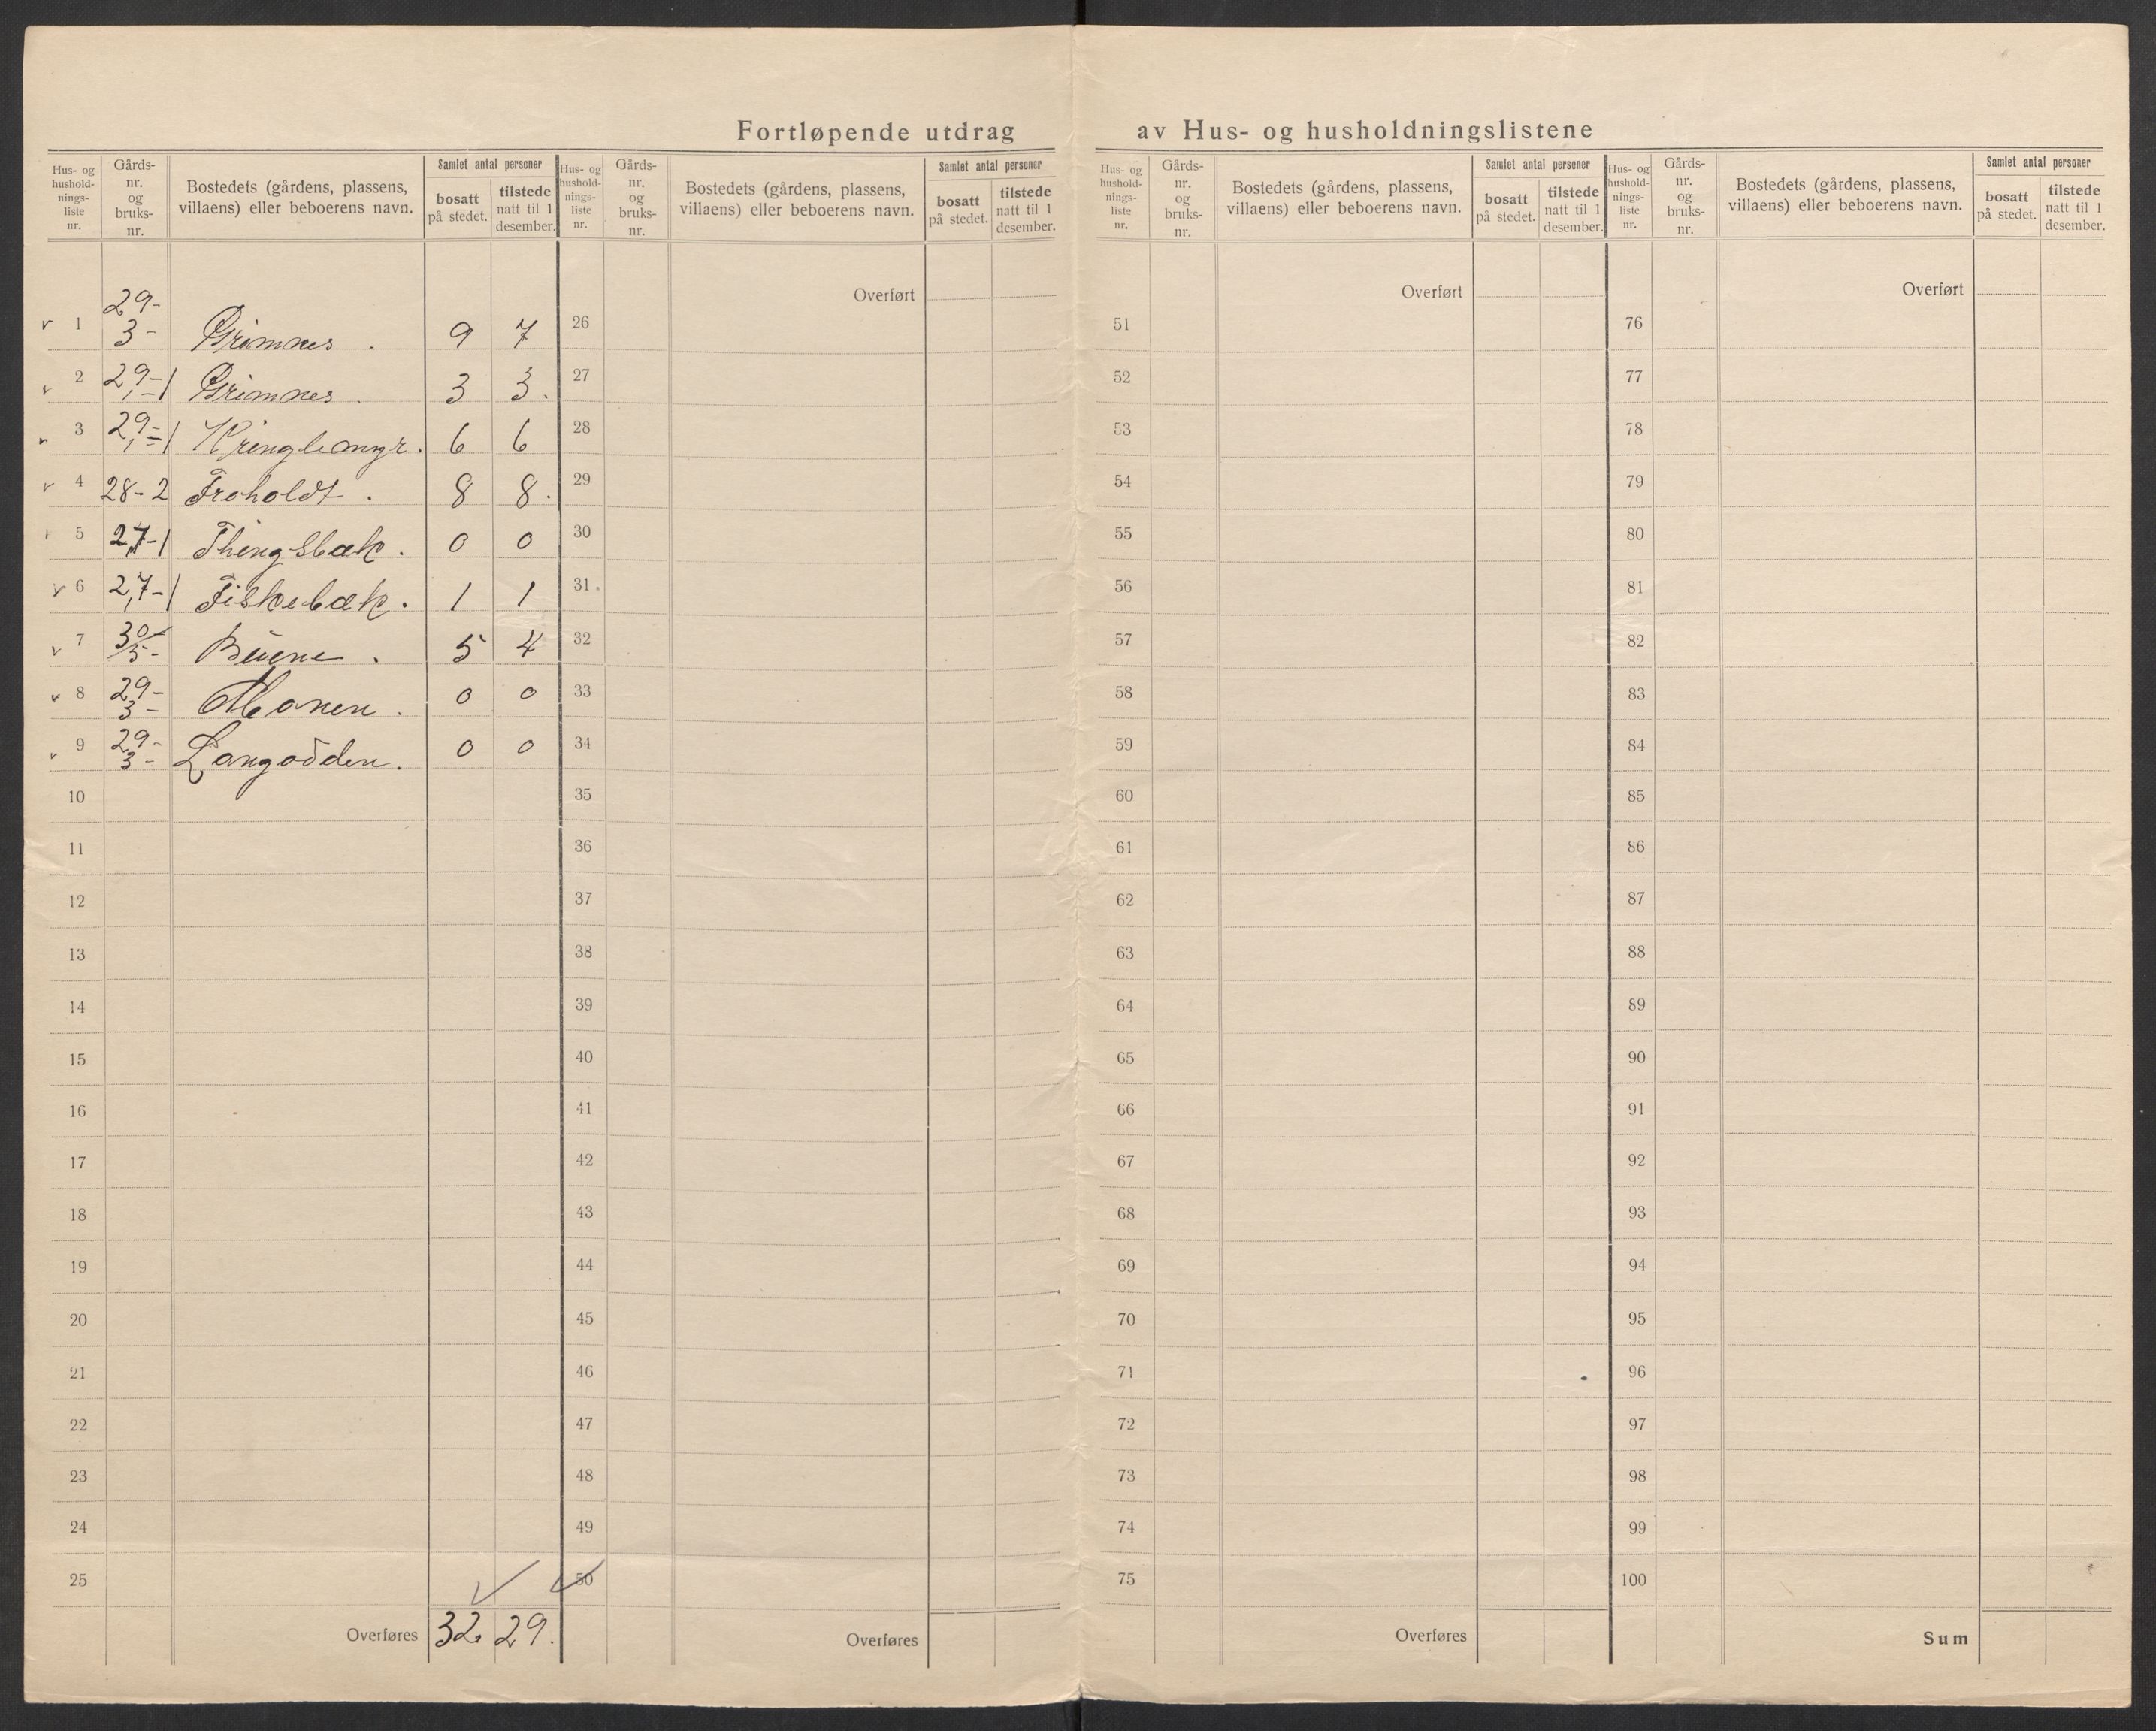 Fortløpende utdrag av Hus- og husholdningslistene
Hus- og hushold-nings-liste nr. | Gårds-nr. og bruks-nr. | Bostedets (gårdens, plassens, villaens) eller beboerens navn. | Samlet antal personer | bosatt på stedet. | tilstede natt til 1 desember.
1 29-3- Grimnes . 9 7
2 29,-1 Grimnes . 3 3.
3 29,-1 Kringlemyr. 6 6
4 28-2 Froholdt . 8 8.
5 27-1 Thingsbæk . 0 0
6 27-1 Fiskebæk . 1 1
7 30/5- Buene . 5 4
8 29-3- Monen . 0 0
9 29-3- Langodden. 0 0
10
11
12
13
14
15
16
17
18
19
20
21
22
23
24
25
Overføres 32. 29.
Hus- og hushold-nings-liste nr. | Gårds-nr. og bruks-nr. | Bostedets (gårdens, plassens, villaens) eller beboerens navn. | Samlet antal personer | bosatt på stedet. | tilstede natt til 1 desember.
Overført
26
27
28
29
30
31
32
33
34
35
36
37
38
39
40
41
42
43
44
45
46
47
48
49
50
Overføres
Hus- og hushold-nings-liste nr. | Gårds-nr. og bruks-nr. | Bostedets (gårdens, plassens, villaens) eller beboerens navn. | Samlet antal personer | bosatt på stedet. | tilstede natt til 1 desember.
Overført
51
52
53
54
55
56
57
58
59
60
61
62
63
64
65
66
67
68
69
70
71
72
73
74
75
Overføres
Hus- og hushold-nings-liste nr. | Gårds-nr. og bruks-nr. | Bostedets (gårdens, plassens, villaens) eller beboerens navn. | Samlet antal personer | bosatt på stedet. | tilstede natt til 1 desember.
Overført
76
77
78
79
80
81
82
83
84
85
86
87
88
89
90
91
92
93
94
95
96
97
98
99
100
Sum